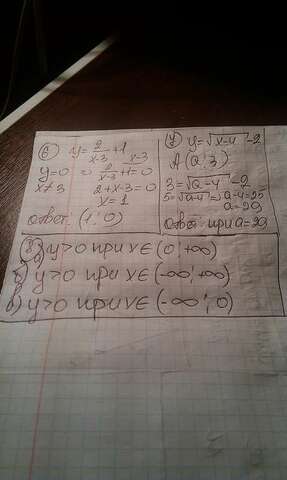 ⑥ y = 2/x-3 + 1
y=0 ⇒ 2/x-3 + 1 = 0
x≠3 2+x-3=0
x=1
ответ: (1; 0)
⑦ y=√x-4 -2
A (a; 3)
3=√a-4 -2
5=√a-4 ⇒ a-4=25
a=29
ответ: при a=29
⑧ а) y>0 при x∈(0; +∞)
y>0 при x∈(-∞; +∞)
в) y>0 при x∈(-∞; 0)